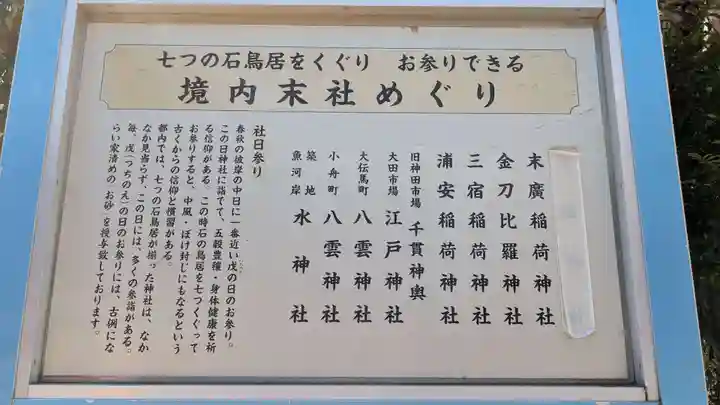 七つの石鳥居をくぐり　お参りできる
境内末社めぐり
末廣稲荷神社
金刀比羅神社
三宿稲荷神社
浦安稲荷神社
旧神田市場 千貫神輿
大田市場 江戸神社
大伝馬町 八雲神社
小舟町 八雲神社
築地
魚河岸 水神社
社日参り
春秋の彼岸の中日に一番近い戊の日のお参り。
この日神社に詣でて、五穀豊穣・身体健康を祈
る信仰がある。この時石の鳥居を七つくぐって
お参りすると、中風・ぼけ封じにもなるという
古くからの信仰と慣習がある。
都内では、七つの石鳥居が揃った神社は、なか
なか見当らず、この日には、多くの参詣がある。
毎、戊(つちのえ)の日のお参りには、古例にな
らい家清めの「お砂」を授与致しております。